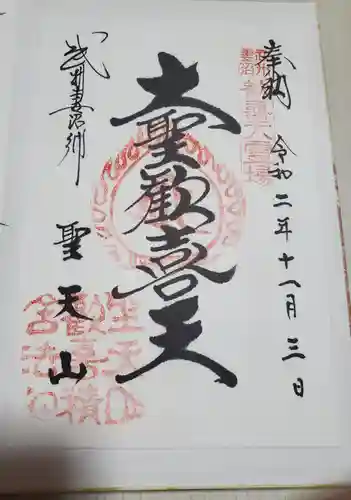 奉納 令和二年十一月三日
大聖歓喜天
武州妻沼郷
聖天山
武州
妻沼